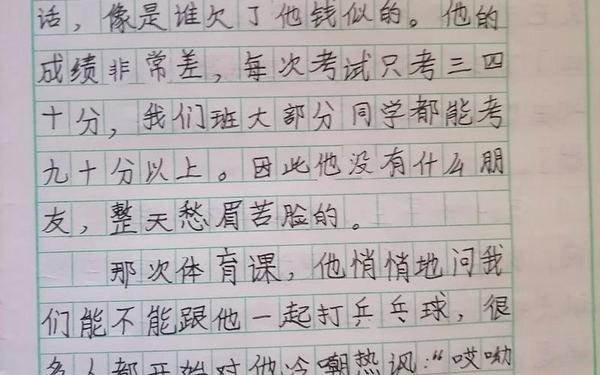 话，像是谁欠了他钱似的。他的
成绩非常差，每次考试只考三四
十分，我们班大部分同学都能考
九十分以上。因此他没有什么朋
友，整天愁眉苦脸的。
那次体育课，他悄悄地问我
们能不能跟他一起打乒乓球，很
多人都开始对他冷嘲热讽：“哎呦